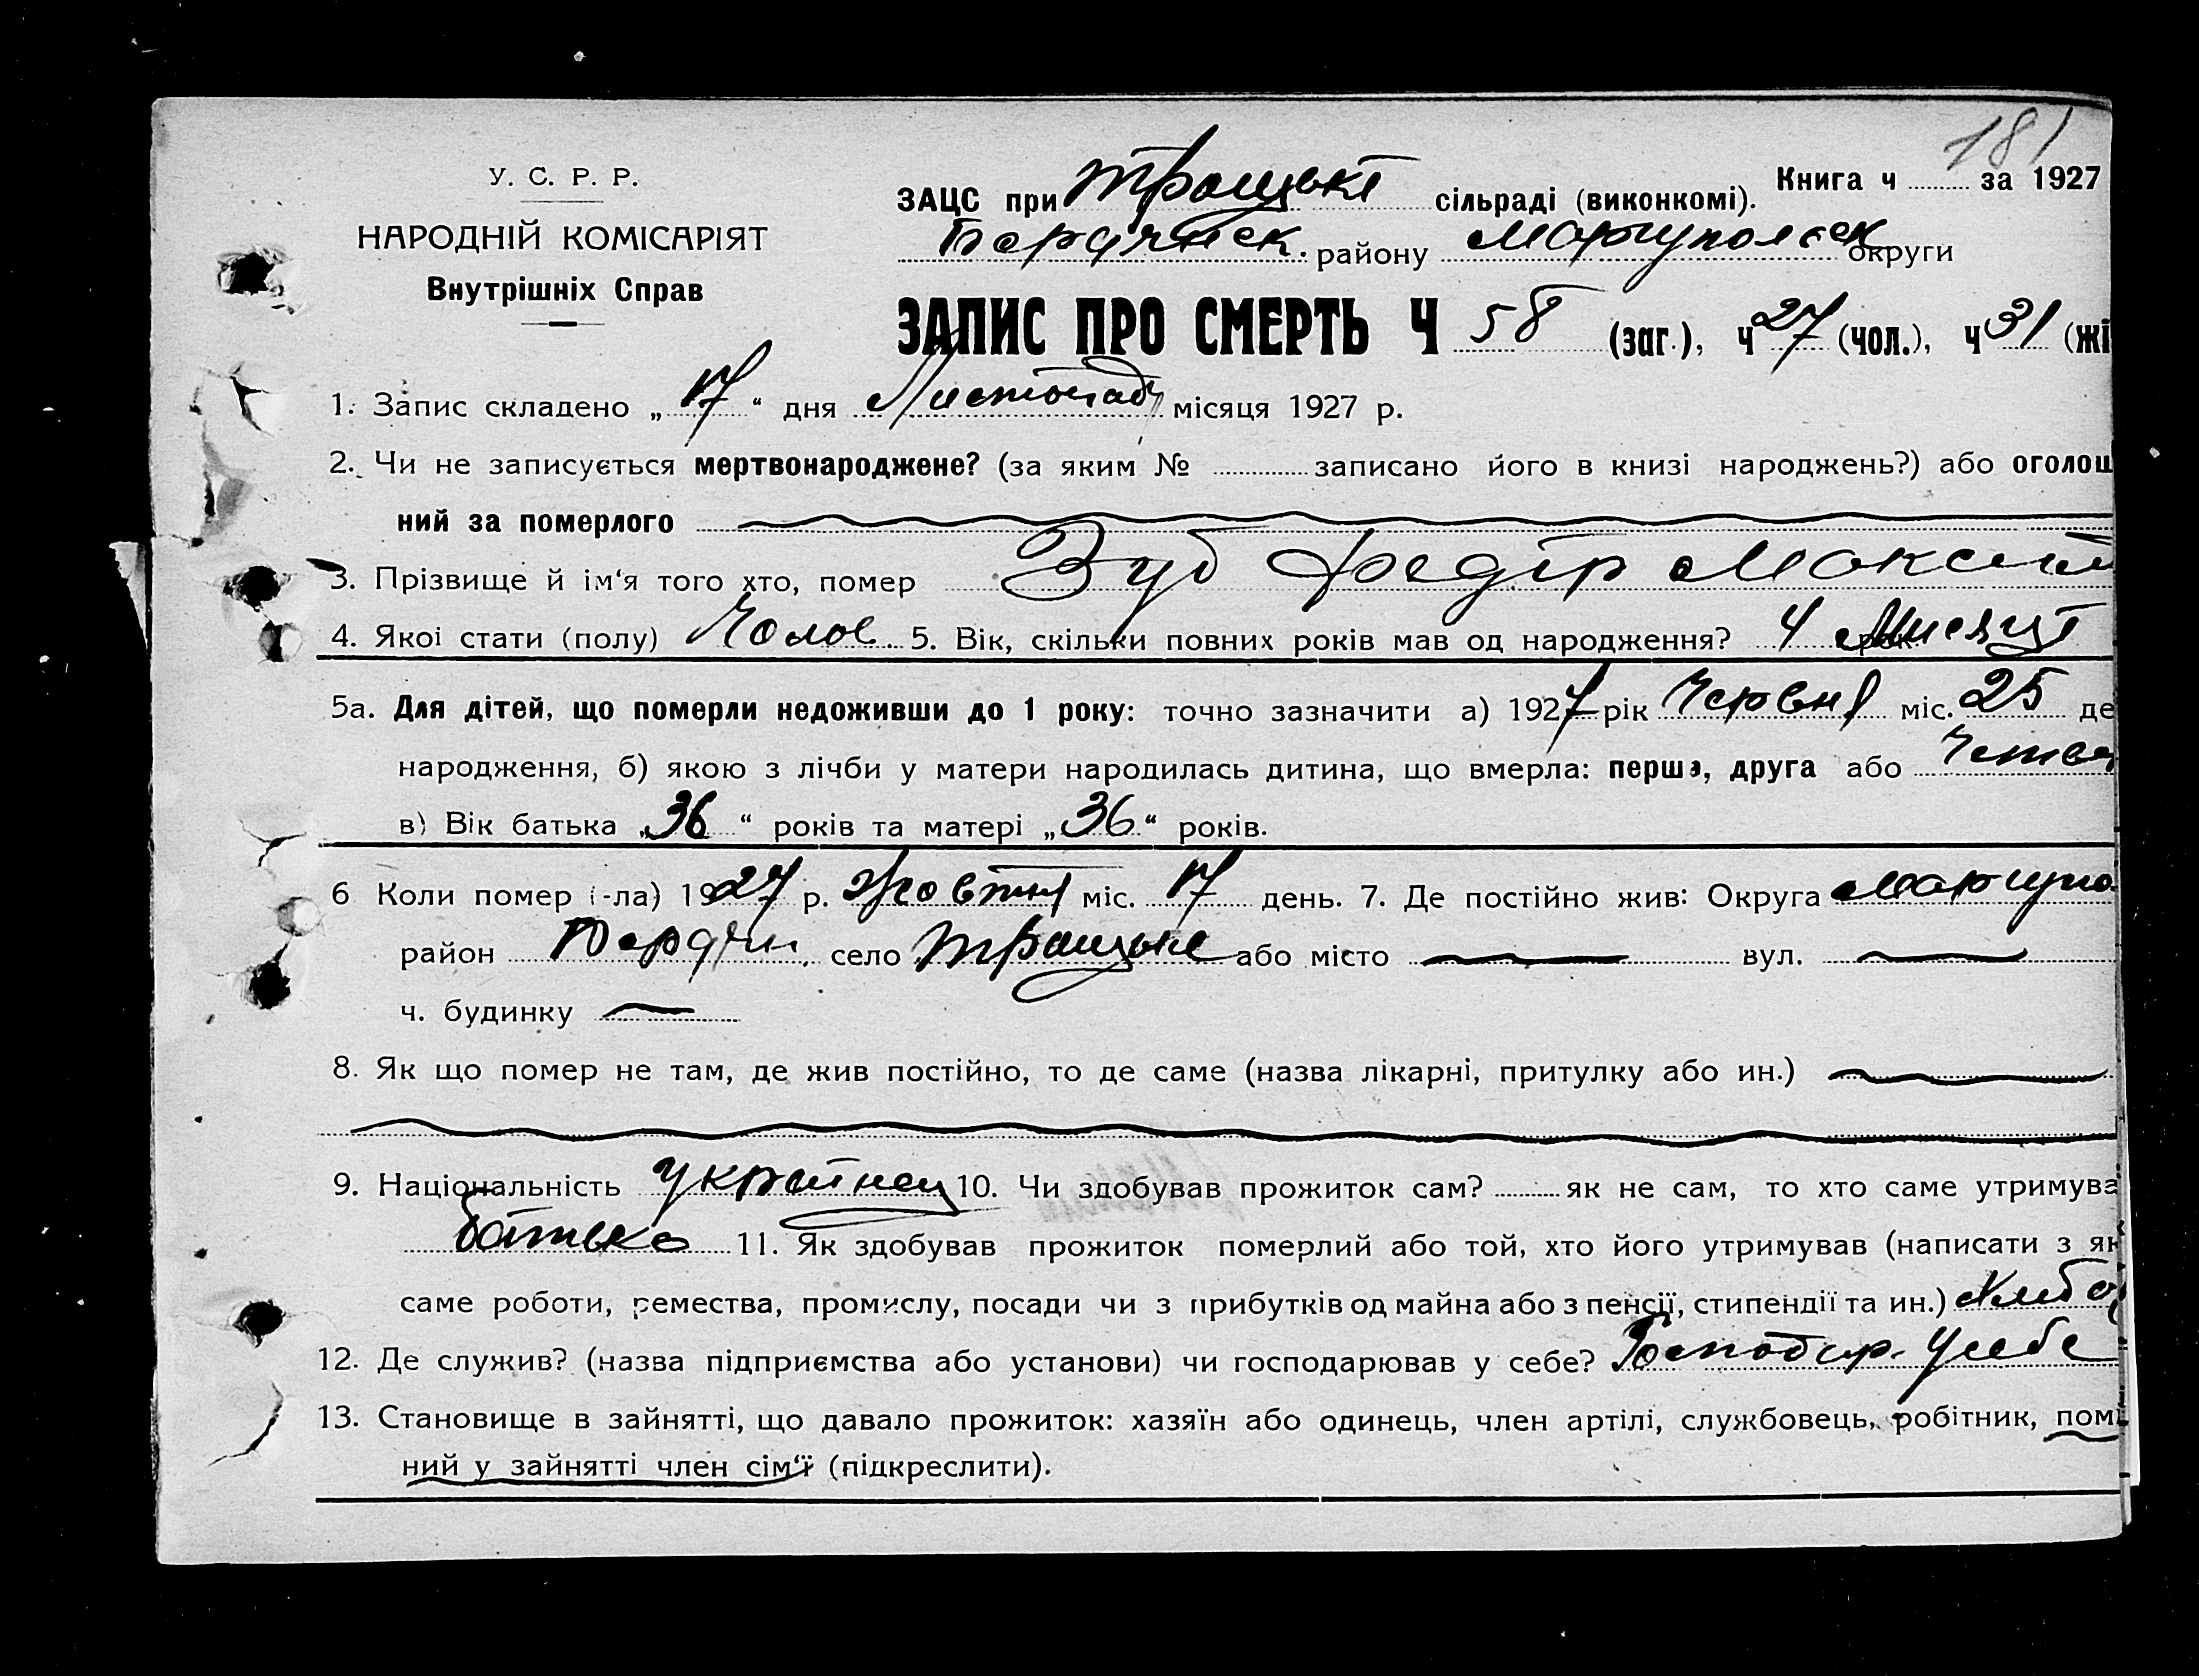 181
У. С. Р. Р.
НАРОДНІЙ КОМІСАРІЯТ
Внутрішніх Справ
ЗАЦС при Троцькі сільраді (виконкомі). Книга ч за 1927
Бердянск. району Мариупольск округи
ЗАПИС ПРО СМЕРТЬ Ч 58 (заг.), ч 27 (чол.), ч 31 (жі
1. Запис складено „ 17 “ дня Листопаду місяця 1927 р.
2. Чи не записується мертвонароджене? (за яким № записано його в книзі народжень?) або оголош
ний за померлого
3. Прізвище й ім‘я того хто, помер Зуб Федір Максим
4. Якої стати (полу) Чолов. 5. Вік, скільки повних років мав од народження? 4 Мисяці
5а. Для дітей, що померли недоживши до 1 року: точно зазначити а) 1927 рік Червня міс. 25 де
народження, б) якою з лічби у матери народилась дитина, що вмерла: перша, друга або Четве
в) Вік батька „36“ років та матері „36“ років.
6 Коли помер (-ла) 1927 р. Жовтня міс. 17 день. 7. Де постійно жив: Округа Мариупо
район Бердян. село Троцьке або місто вул.
ч. будинку
8. Як що помер не там, де жив постійно, то де саме (назва лікарні, притулку або ин.)
9. Національність Українец 10. Чи здобував прожиток сам? як не сам, то хто саме утримува
батько 11. Як здобував прожиток померлий або той, хто його утримував (написати з як
саме роботи, ремества, промислу, посади чи з прибутків од майна або з пенсії, стипендії та ин.) Хлибо
12. Де служив? (назва підприємства або установи) чи господарював у себе? Господар. у себе
13. Становище в зайнятті, що давало прожиток: хазяїн або одинець, член артілі, службовець, робітник, помі
ний у зайнятті член сім‘ї (підкреслити).